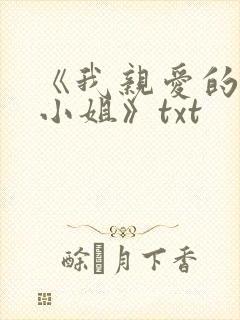 《我親愛的
小姐》txt
月下香